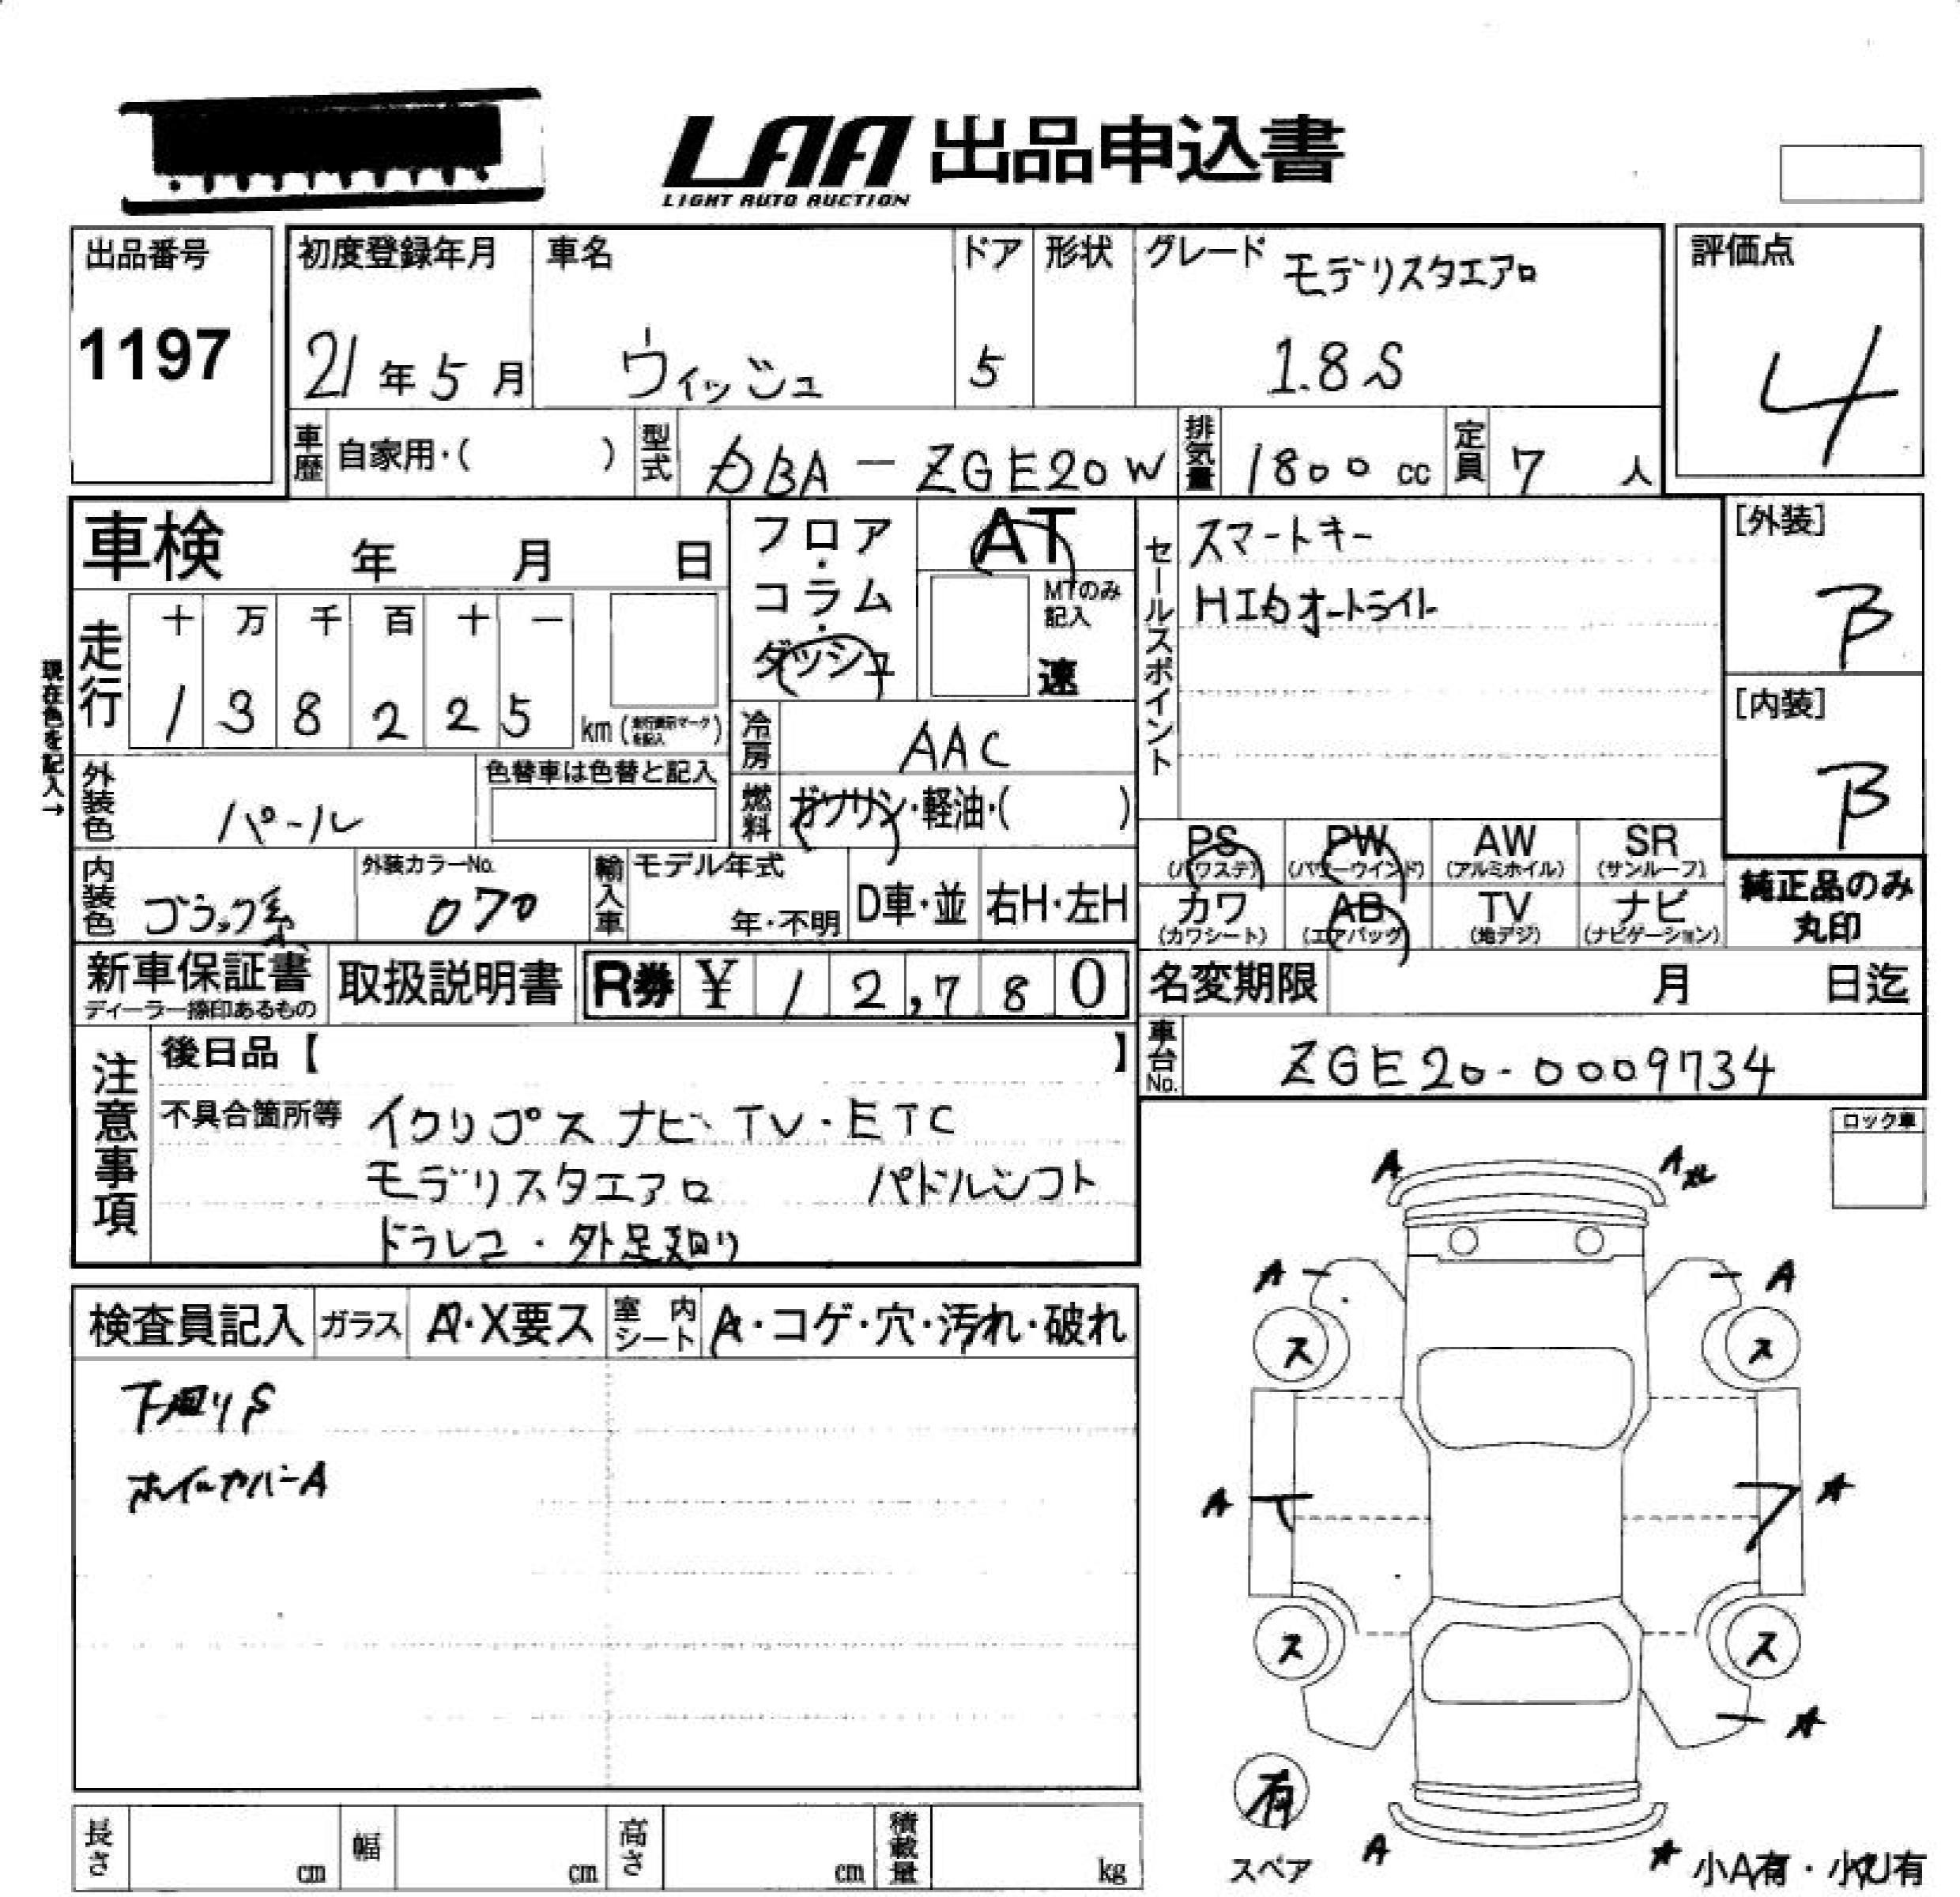 LAA 出品申込書
LIGHT AUTO AUCTION
出品番号
1197
初度登録年月
21年5月
車名
ウィッシュ
ドア
5
形状
グレード
モデリスタエアロ
1.8S
評価点
4
車歴 自家用・( )
型式 DBA-ZGE20W
排気量 1800cc
定員 7人
車検 年 月 日
フロア・コラム・ダッシュ
AT
MTのみ記入
速
セールスポイント
スマートキー
HIDオートライト
[外装]
B
[内装]
B
現在色を記入→
走行
十 万 千 百 十 一
1 3 8 2 2 5
km(走行表示マークを記入)
冷房 AAC
燃料 ガソリン・軽油・( )
外装色 パール
色替車は色替と記入
内装色 ブラック系
外装カラーNo.
070
輸入車
モデル年式
年・不明
D車・並
右H・左H
PS
(パワステ)
PW
(パワーウインド)
AW
(アルミホイル)
SR
(サンルーフ)
カワ
(カワシート)
AB
(エアバッグ)
TV
(地デジ)
ナビ
(ナビゲーション)
純正品のみ
丸印
新車保証書
ディーラー捺印あるもの
取扱説明書
R券 ¥ 12,780
名変期限 月 日迄
車台No. ZGE20-0009734
注意事項
後日品【 】
不具合箇所等 イクリプスナビ、TV・ETC
モデリスタエアロ パドルシフト
ドラレコ・外足廻り
ロック車
検査員記入
ガラス A・X要ス
室内シート A・コゲ・穴・汚れ・破れ
下廻りS
ホイールカバーA
A
A
A
A
ス
ス
A
A
ス
ス
A
有
スペア
A
A
小A有・小U有
長さ cm
幅 cm
高さ cm
積載量 kg